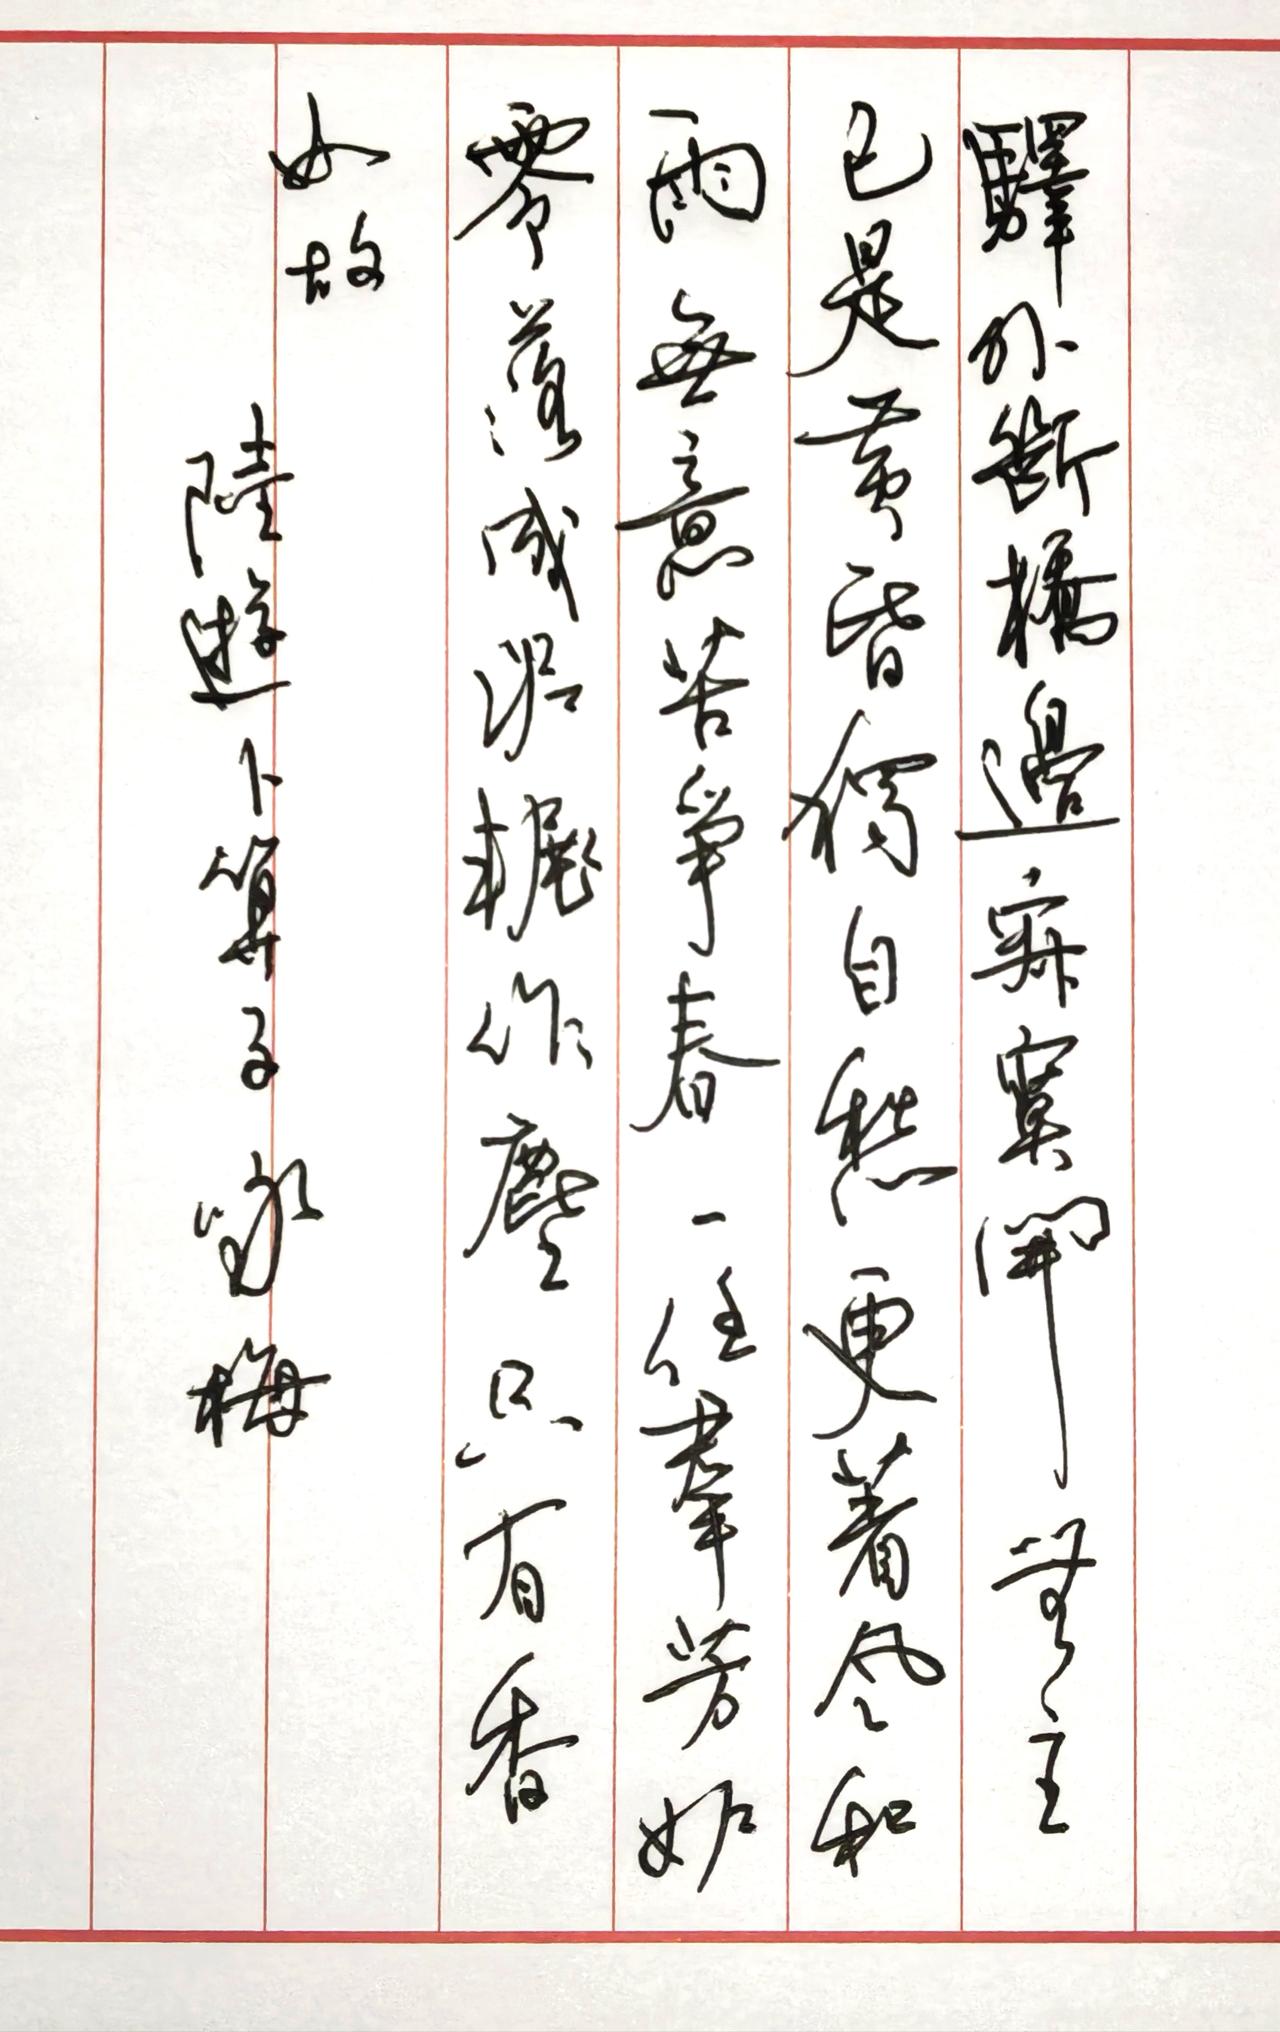 驛外斷橋邊寂寞開無主
已是黃昏獨自愁更著风和
雨無意苦爭春一任羣芳妒
零落成泥輾作塵只有香
如故
陸遊卜算子詠梅